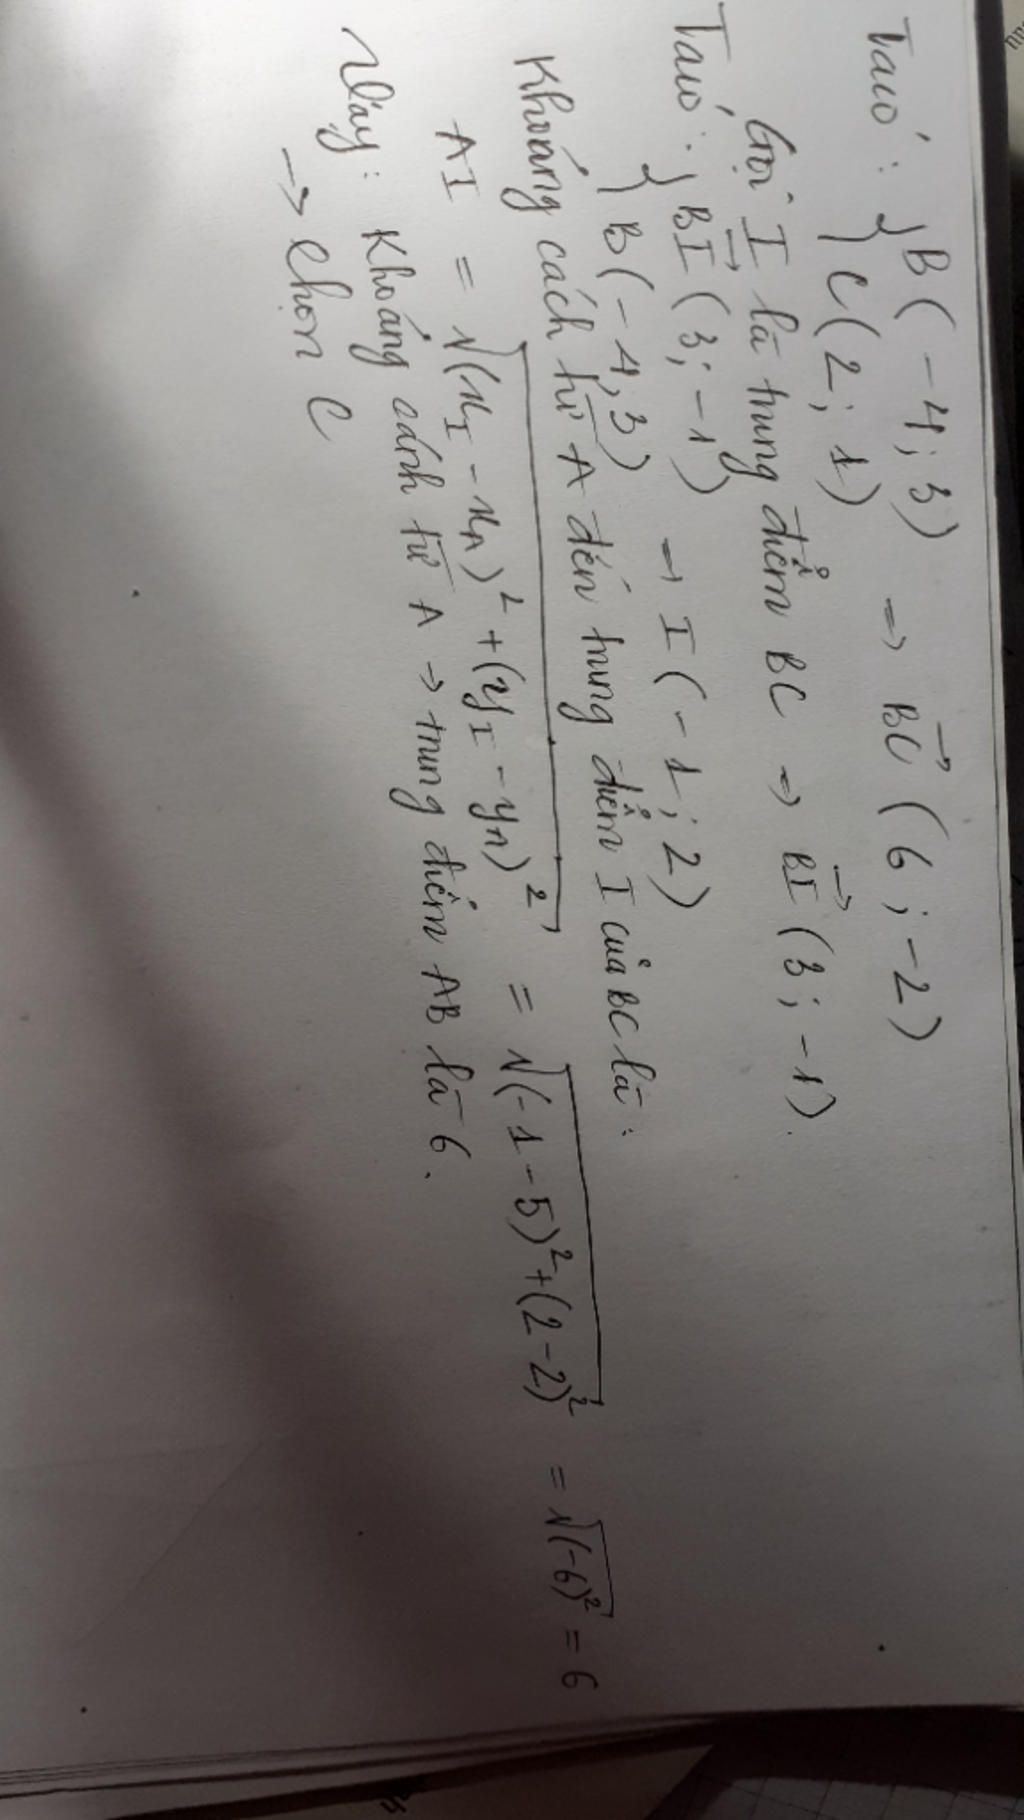 Ta có: } B(-4; 3) => BC→ (6; -2)
} C(2; 1)
Gọi I là trung điểm BC => BI→ (3; -1).
Ta có: } BI→ (3; -1) → I(-1; 2)
} B(-4; 3)
Khoảng cách từ A đến trung điểm I của BC là:
AI = √(x_I - x_A)² + (y_I - y_A)² = √(-1-5)² + (2-2)² = √(-6)² = 6
Vậy: Khoảng cánh từ A → trung điểm AB là 6.
→ Chọn C